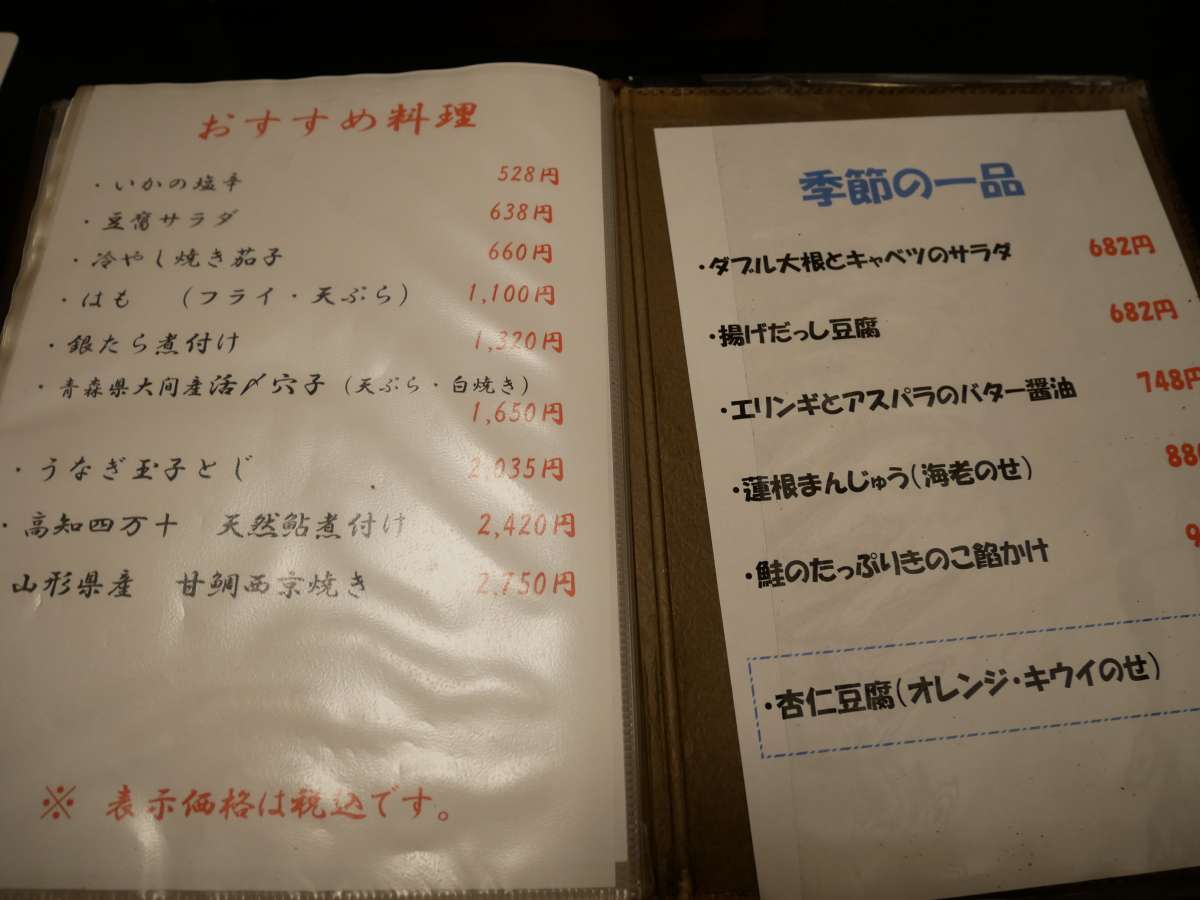 おすすめ料理
・いかの塩辛 528円
・豆腐サラダ 638円
・冷やし焼き茄子 660円
・はも (フライ・天ぷら) 1,100円
・銀たら煮付け 1,320円
・青森県大間産活〆穴子(天ぷら・白焼き)
1,650円
・うなぎ玉子とじ 2,035円
・高知四万十 天然鮎煮付け 2,420円
山形県産 甘鯛西京焼き 2,750円
※ 表示価格は税込です。
季節の一品
・ダブル大根とキャベツのサラダ 682円
・揚げだっし豆腐 682円
・エリンギとアスパラのバター醤油 748円
・蓮根まんじゅう(海老のせ)
・鮭のたっぷりきのこ餡かけ
・杏仁豆腐(オレンジ・キウイのせ)